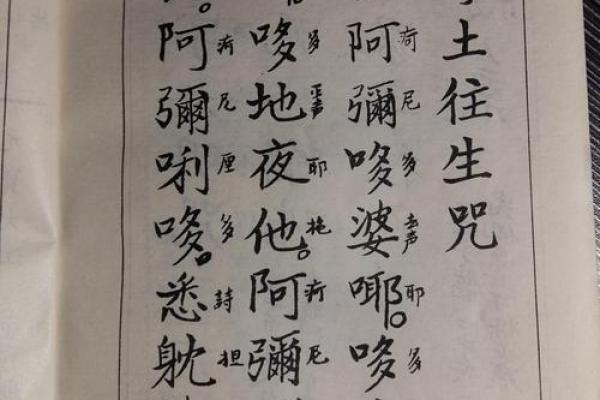 土往生咒
阿彌哆婆㖿。哆
疴尼多去声耶多
哆地夜他。阿彌
多耶拖疴尼
。阿彌唎哆。悉躭
疴尼厘多詩担